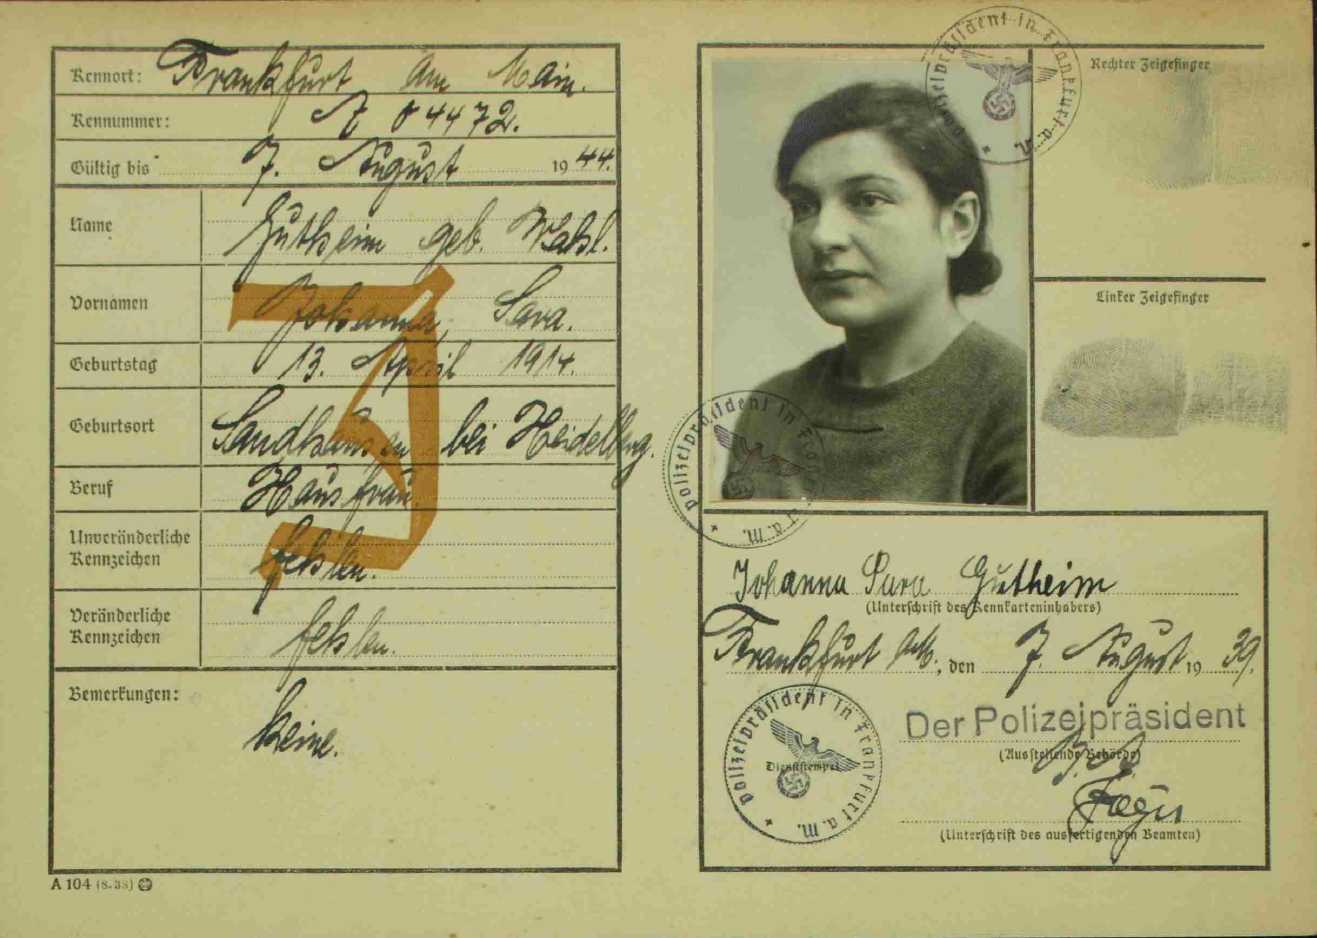 Kennort: Frankfurt am Main.
Kennummer: A 04472.
Gültig bis 7. August 1944.
Name Gutheim geb. Wahl.
Vornamen Johanna, Sara.
Geburtstag 13. April 1914.
Geburtsort Sandhausen bei Heidelberg.
Beruf Hausfrau.
Unveränderliche
Kennzeichen fehlen.
Veränderliche
Kennzeichen fehlen.
Bemerkungen:
keine.
J
A 104 (8.38)
Polizeipräsident in Frankfurt a. M.
Rechter Zeigefinger
Linker Zeigefinger
Polizeipräsident in Frankfurt a. M.
Johanna Sara Gutheim
(Unterschrift des Kennkarteninhabers)
Frankfurt a/M., den 7. August 1939.
Der Polizeipräsident
(Ausstellende Behörde)
Polizeipräsident in Frankfurt a. M.
Dienststempel
(Unterschrift des ausfertigenden Beamten)